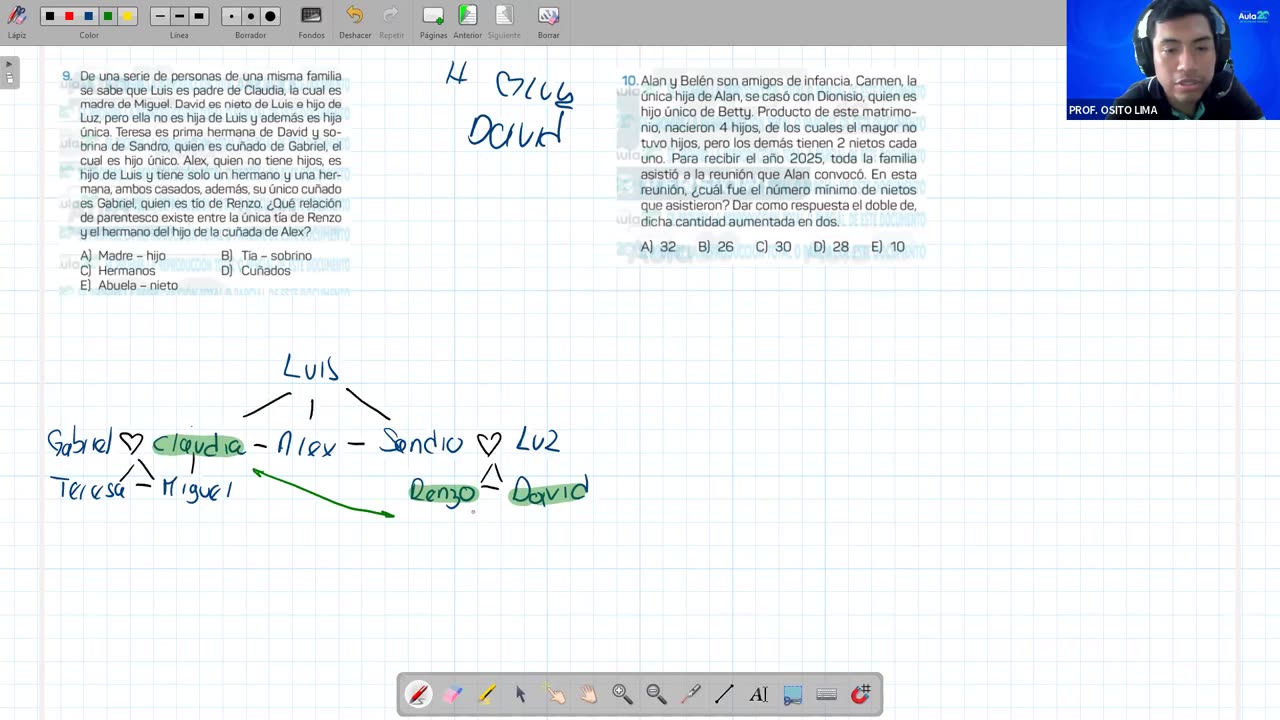 Lápiz
Color
Línea
Borrador
Fondos
Deshacer
Repetir
Páginas
Anterior
Siguiente
Borrar
Aula20
PROF. OSITO LIMA
9. De una serie de personas de una misma familia
se sabe que Luis es padre de Claudia, la cual es
madre de Miguel. David es nieto de Luis e hijo de
Luz, pero ella no es hija de Luis y además es hija
única. Teresa es prima hermana de David y so-
brina de Sandro, quien es cuñado de Gabriel, el
cual es hijo único. Alex, quien no tiene hijos, es
hijo de Luis y tiene solo un hermano y una her-
mana, ambos casados, además, su único cuñado
es Gabriel, quien es tío de Renzo. ¿Qué relación
de parentesco existe entre la única tía de Renzo
y el hermano del hijo de la cuñada de Alex?
A) Madre – hijo
B) Tía – sobrino
C) Hermanos
D) Cuñados
E) Abuela – nieto
David
10. Alan y Belén son amigos de infancia. Carmen, la
única hija de Alan, se casó con Dionisio, quien es
hijo único de Betty. Producto de este matrimo-
nio, nacieron 4 hijos, de los cuales el mayor no
tuvo hijos, pero los demás tienen 2 nietos cada
uno. Para recibir el año 2025, toda la familia
asistió a la reunión que Alan convocó. En esta
reunión, ¿cuál fue el número mínimo de nietos
que asistieron? Dar como respuesta el doble de,
dicha cantidad aumentada en dos.
A) 32 B) 26 C) 30 D) 28 E) 10
Luis
Gabriel ♡ Claudia – Alex – Sandro ♡ Luz
Teresa – Miguel Renzo – David